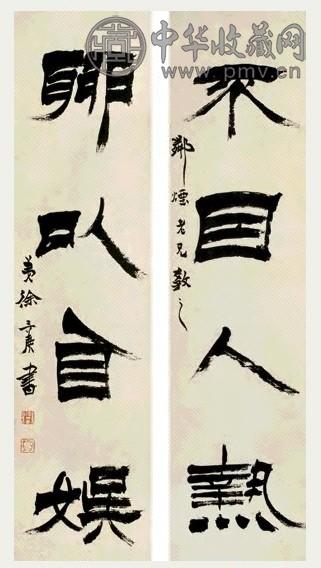 中华收藏网
www.pmv.cn
不因人熱
老兄教之
聊以自娱
弟徐三庚書